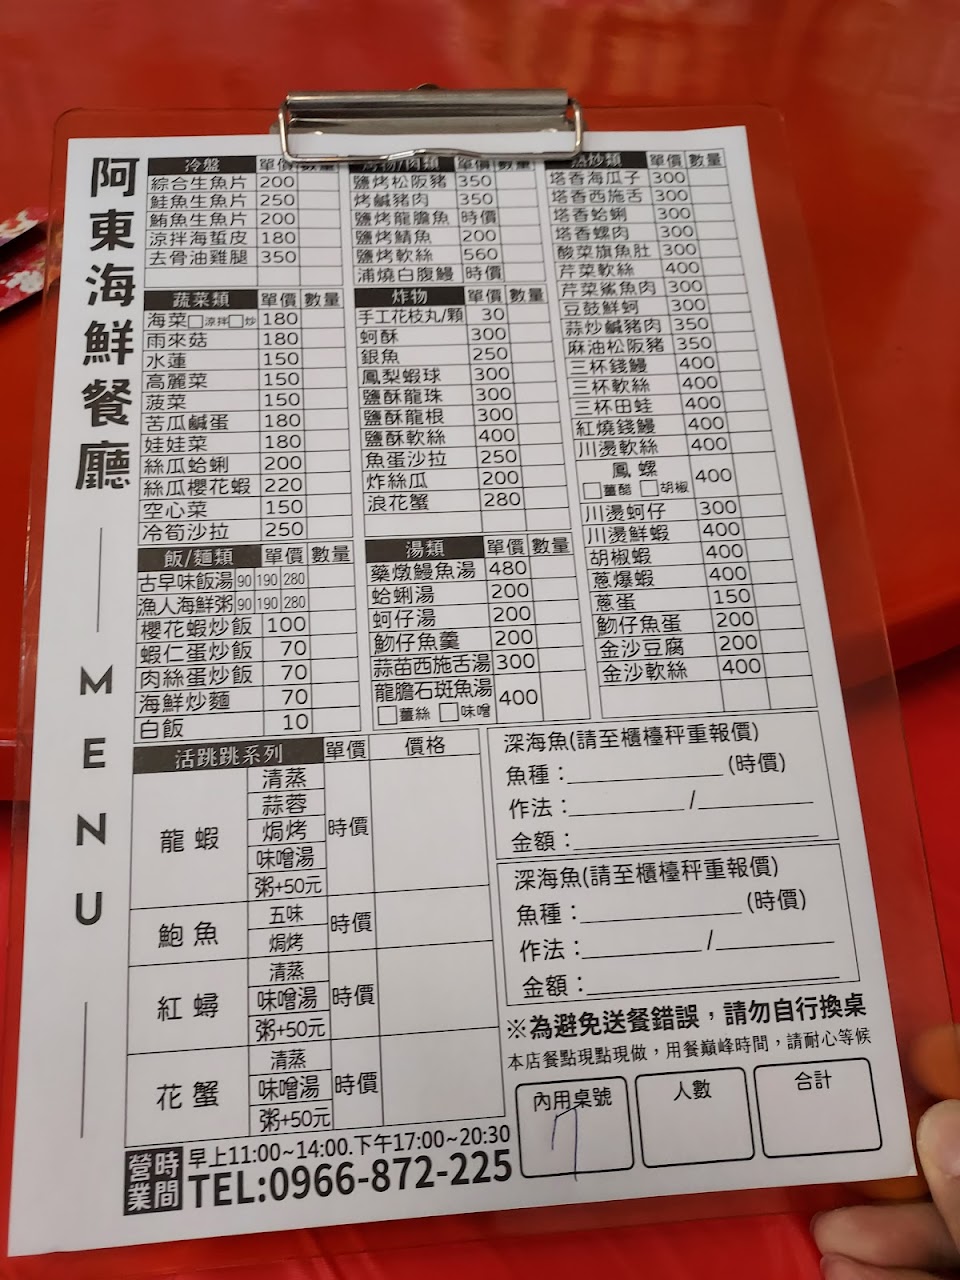 阿東海鮮餐廳
MENU
冷盤 單價 數量
綜合生魚片 200
鮭魚生魚片 250
鮪魚生魚片 200
涼拌海蜇皮 180
去骨油雞腿 350
蔬菜類 單價 數量
海菜□涼拌□炒 180
雨來菇 180
水蓮 150
高麗菜 150
菠菜 150
苦瓜鹹蛋 180
娃娃菜 180
絲瓜蛤蜊 200
絲瓜櫻花蝦 220
空心菜 150
冷筍沙拉 250
飯/麵類 單價 數量
古早味飯湯 90 190 280
漁人海鮮粥 90 190 280
櫻花蝦炒飯 100
蝦仁蛋炒飯 70
肉絲蛋炒飯 70
海鮮炒麵 70
白飯 10
物/肉類 單價 數量
鹽烤松阪豬 350
烤鹹豬肉 350
鹽烤龍膽魚 時價
鹽烤鯖魚 200
鹽烤軟絲 560
浦燒白腹鰻 時價
炸物 單價 數量
手工花枝丸/顆 30
蚵酥 300
銀魚 250
鳳梨蝦球 300
鹽酥龍珠 300
鹽酥龍根 300
鹽酥軟絲 400
魚蛋沙拉 250
炸絲瓜 200
浪花蟹 280
湯類 單價 數量
藥燉鰻魚湯 480
蛤蜊湯 200
蚵仔湯 200
魩仔魚羹 200
蒜苗西施舌湯 300
龍膽石斑魚湯 400
□薑絲 □味噌
熱炒類 單價 數量
塔香海瓜子 300
塔香西施舌 300
塔香蛤蜊 300
塔香螺肉 300
酸菜旗魚肚 300
芹菜軟絲 400
芹菜鯊魚肉 300
豆鼓鮮蚵 300
蒜炒鹹豬肉 350
麻油松阪豬 350
三杯錢鰻 400
三杯軟絲 400
三杯田蛙 400
紅燒錢鰻 400
川燙軟絲 400
鳳螺 400
□薑醋 □胡椒
川燙蚵仔 300
川燙鮮蝦 400
胡椒蝦 400
蔥爆蝦 400
蔥蛋 150
魩仔魚蛋 200
金沙豆腐 200
金沙軟絲 400
活跳跳系列 單價 價格
龍蝦 時價
清蒸
蒜蓉
焗烤
味噌湯
粥+50元
鮑魚 時價
五味
焗烤
紅蟳 時價
清蒸
味噌湯
粥+50元
花蟹 時價
清蒸
味噌湯
粥+50元
深海魚(請至櫃檯秤重報價)
魚種：____________(時價)
作法：________/________
金額：________________
深海魚(請至櫃檯秤重報價)
魚種：____________(時價)
作法：________/________
金額：________________
※為避免送餐錯誤，請勿自行換桌
本店餐點現點現做，用餐巔峰時間，請耐心等候
內用桌號 人數 合計
7
營業時間 早上11:00~14:00.下午17:00~20:30
TEL:0966-872-225